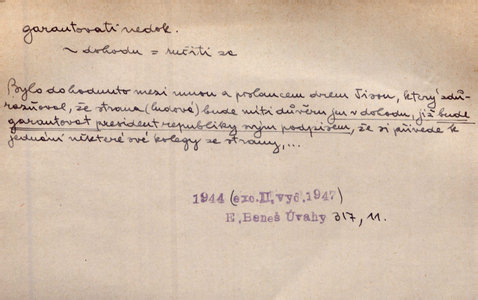 garantovati nedok.
~ dohodu = ručiti za
Bylo dohodnuto mezi mnou a poslancem drem Tisou, který zdů-
razňoval, že strana (ludová) bude míti důvěru jen v dohodu, již bude
garantovat president republiky svým podpisem, že si přivede k
jednání některé své kolegy ze strany,...
1944 (exc.II,vyd.1947)
E. Beneš Úvahy 317, 11.